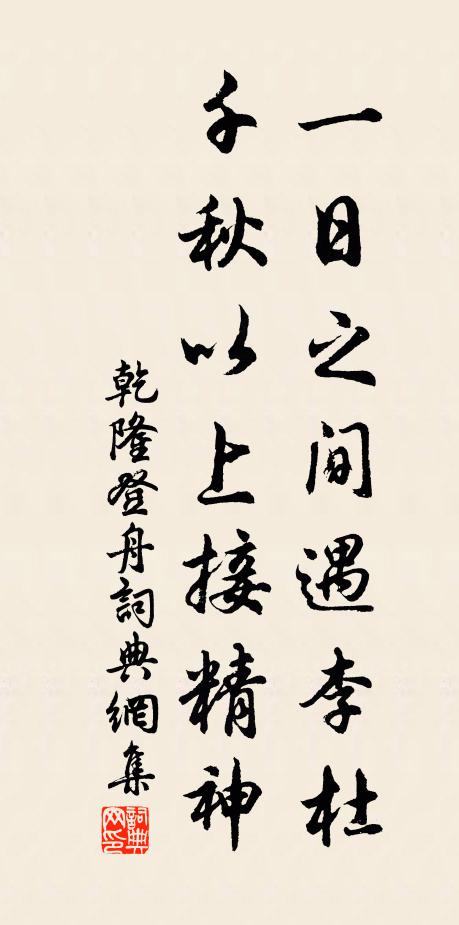 一日之间遇李杜
千秋以上接精神
乾隆登舟詞典網集
詞典网印